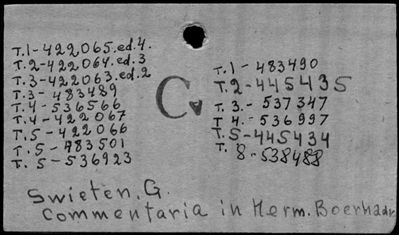 T.1-422065.ed.4.
T.2-422064.ed.3
T.3-422063.ed.2
T.3-483489
T.4-536566
T.4-422067
T.5-422066
T.5-483501
T.5-536923
C
T.1-483490
T.2-445435
T.3.-537347
T 4.-536997
T.5-445434
T.8-538488
Swieten, G.
Commentaria in Herm. Boerhaav